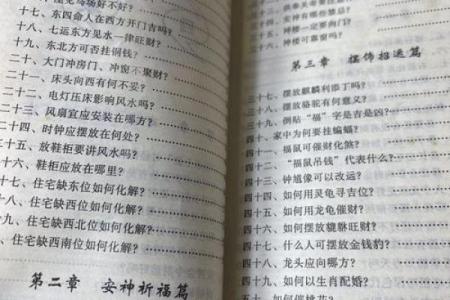 马场好不好?
十七、东四命人在西方开门吉吗?
十八、七运东方见水一律旺财?
十九、东北方可否挂铜钱?
二十、大门冲房门、冲窗不聚财?
二十一、床头向西有何不妥?
二十二、电灯压床影响风水吗?
二十三、风扇宜应安装在哪方?
二十四、时钟应摆放在何处?
二十五、放鞋柜要讲风水吗?
二十六、鞋柜应放在哪里?
十七、住宅缺东位如何化解?
十八、住宅缺西位如何化解?
九、住宅缺西北位如何化解?
、住宅缺西南位如何化解?
第二章 安神祈福篇
三十五、神
三十六、神楼可靠窗
第三章 摆饰招运篇
三十七、摆放麒麟利添丁吗?
三十八、摆放骆驼有何意义?
三十九、倒贴“福”字是吉是凶?
四十、家中为何要挂蝙蝠?
四十一、福鼠可催财化煞?
四十二、“福鼠吊钱”代表什么?
四十三、钟馗像可以改运?
四十四、如何用灵龟寻吉位?
四十五、如何用龙龟催财?
四十六、如何摆放貔貅旺财?
四十七、什么人可摆放金钱豹?
四十八、龙头应向哪方?
四十九、如何以生肖配婚?
五十、如何催桃花?